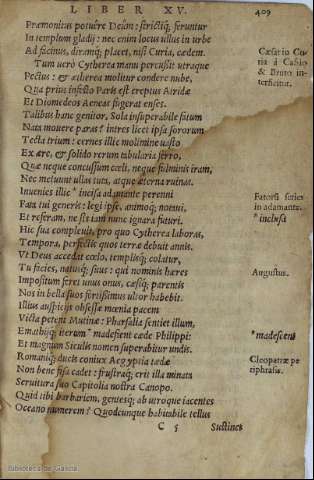 LIBER XV. 409
Præmonitus potuêre Deûm: strictiq́; feruntur
In templum gladij: nec enim locus ullus in urbe
Ad facinus, diramq́; placet, nisi Curia, cædem.
Tum uerò Cytherea manu percussit utraque
Pectus: & ætherea molitur condere nube,
Qua prius infesto Paris est ereptus Atridæ
Et Diomedeos Aeneas fugerat enses.
Talibus hanc genitor, Sola insuperabile fatum
Nata mouere paras? intres licet ipsa sororum
Tecta trium: cernes illic molimine uasto
Ex ære, & solido rerum tabularia ferro,
Quæ neque concussum cœli, neque fulminis iram,
Nec metuunt ullas tuta, atque æterna ruinas.
Inuenies illic * incisa adamante perenni
Fata tui generis: legi ipse, animoq́; notaui,
Et referam, ne sis iam nunc ignara futuri.
Hic sua compleuit, pro quo Cytherea laboras,
Tempora, perfectis quos terræ debuit annis.
Vt Deus accedat cœlo, templisq́; colatur,
Tu facies, natusq́; suus: qui nominis hæres
Impositum feret unus onus, cæsiq́; parentis
Nos in bella suos fortissimus ultor habebit.
Illius auspicijs obsessæ mœnia pacem
Victa petent Mutinæ: Pharsalia sentiet illum,
Emathijq́; iterum * madefient cæde Philippi:
Et magnum Siculis nomen superabitur undis.
Romaniq́; ducis coniux Aegyptia tædæ
Non bene fisa cadet: frustraq́; erit illa minata
Seruitura suo Capitolia nostra Canopo.
Quid tibi barbariem, gentesq́; ab utroque iacentes
Oceano numerem? Quodcunque habitabile tellus
C 5 Sustinet
Cæsar in Cu
ria á Cassio
& Bruto in-
terficitur.
Fatorũ series
in adamanta.
* inclusa
Augustus.
* madescent
Cleopatræ pe
riphrasis.
Biblioteca de Galicia